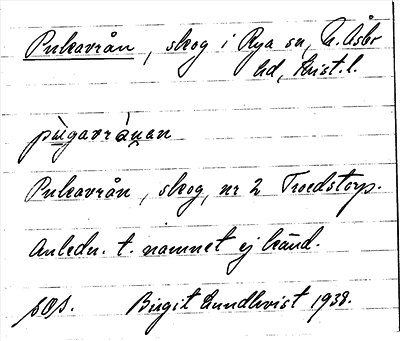 Pukavrån, skog i Rya sn, N. Åsbo
hd, Krist. l.
pùgavrån̥an
Pukavrån, skog, nr 2 Troedstorp.
Anledn. t. namnet ej känd.
sOs. Birgit Lundkvist 1938.